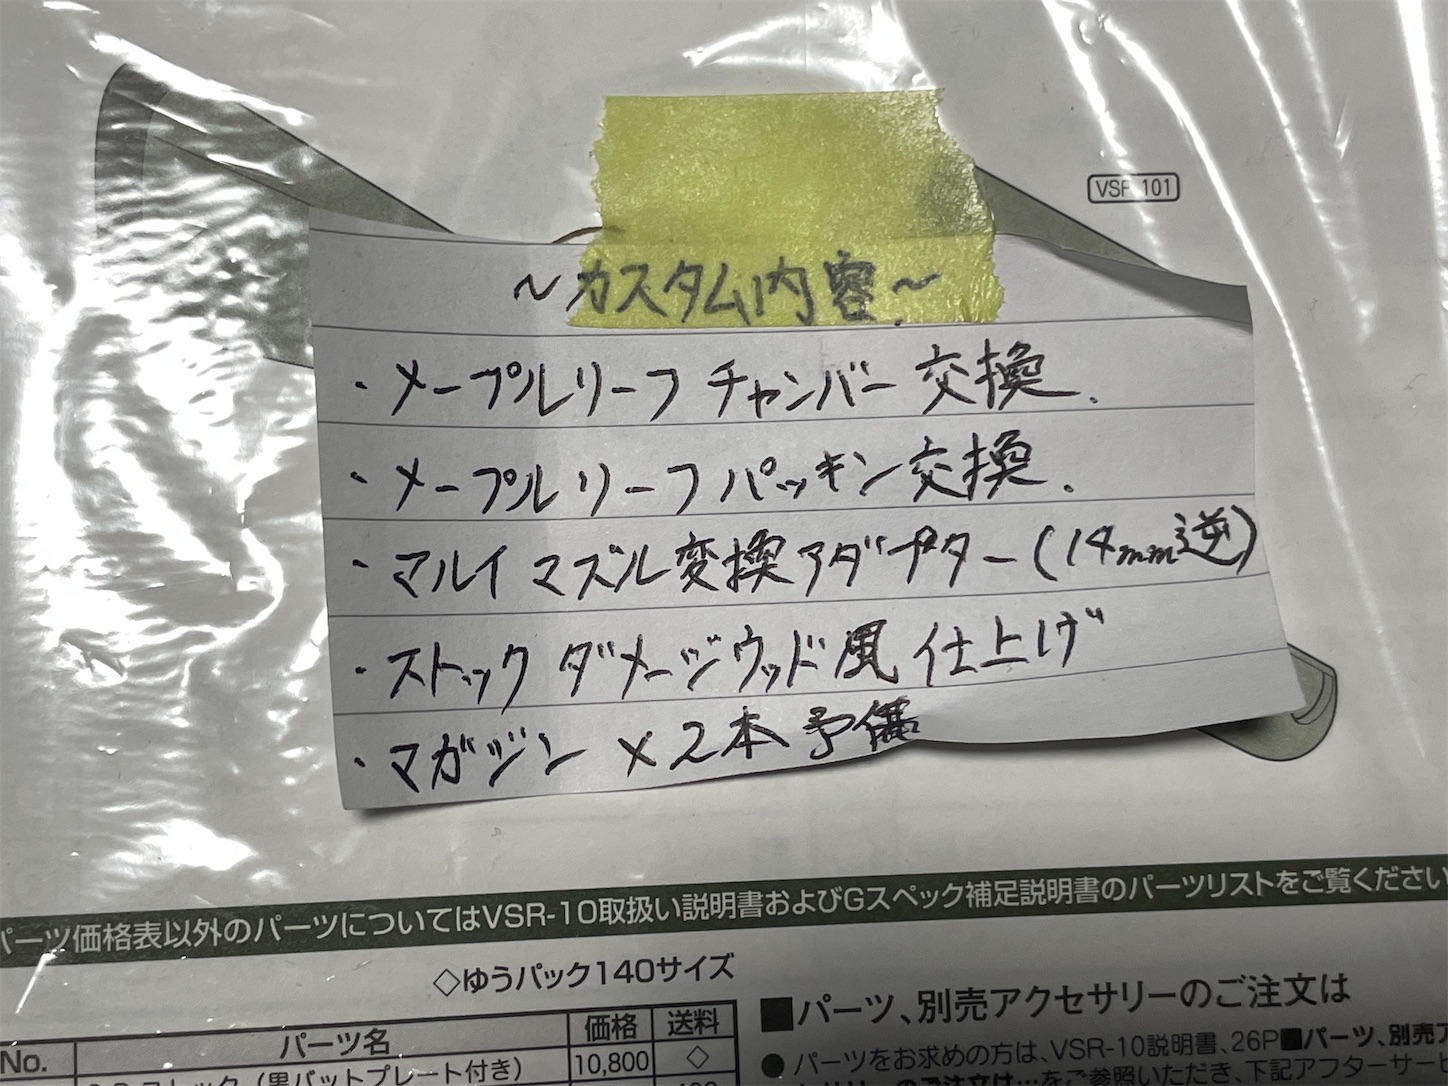 VSR-101
～カスタム内容～
・メープルリーフ チャンバー 交換.
・メープルリーフ パッキン交換.
・マルイ マズル変換アダプター(14mm逆)
・ストック ダメージウッド風 仕上げ
・マガジン×2本 予備
パーツ価格表以外のパーツについてはVSR-10取扱い説明書およびGスペック補足説明書のパーツリストをご覧ください
◇ゆうパック140サイズ
No. パーツ名 価格 送料
ストック（黒バットプレート付き） 10,800 ◇
■パーツ、別売アクセサリーのご注文は
●パーツをお求めの方は、VSR-10説明書、26P■パーツ、別売ア
のご注文は…をご参照いただき、下記アフターサービ